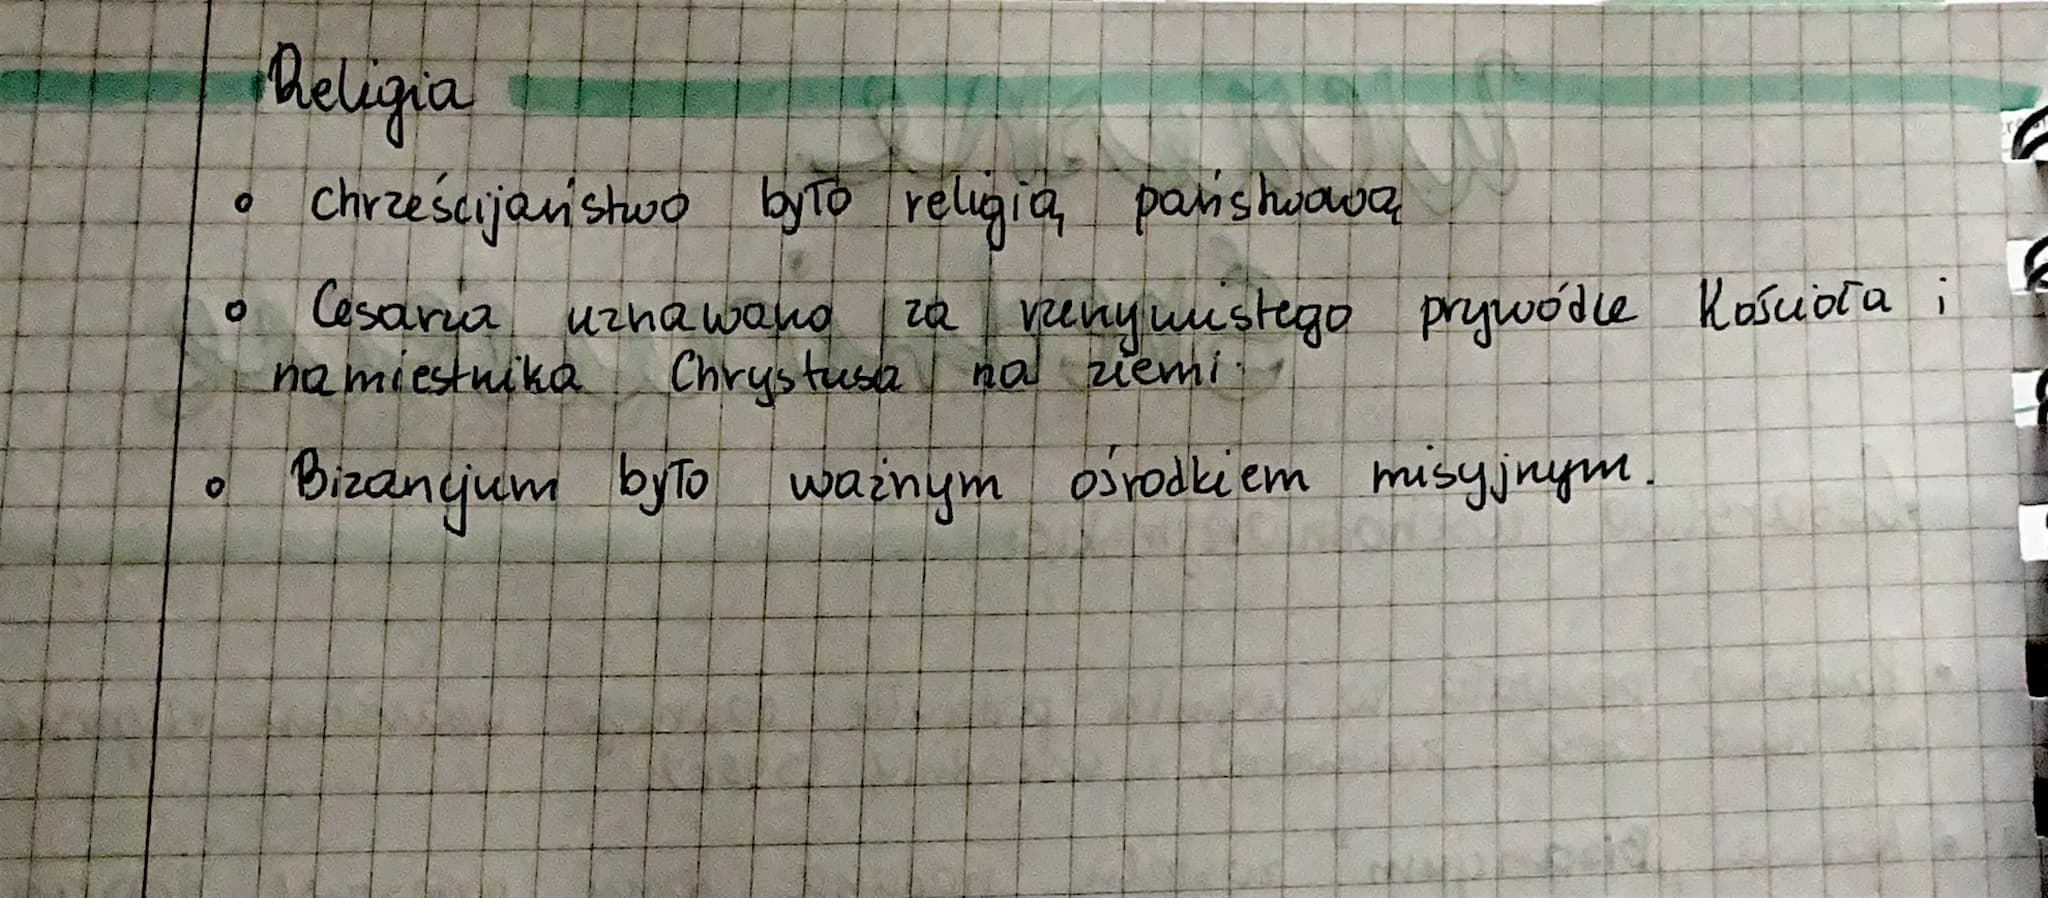 Religia
o chrześcijaństwo było religią państwową
o Cesarza uznawano za rzeczywistego prywódce Kościoła i
namiestnika Chrystusa na ziemi.
o Bizancjum było ważnym ośrodkiem misyjnym.